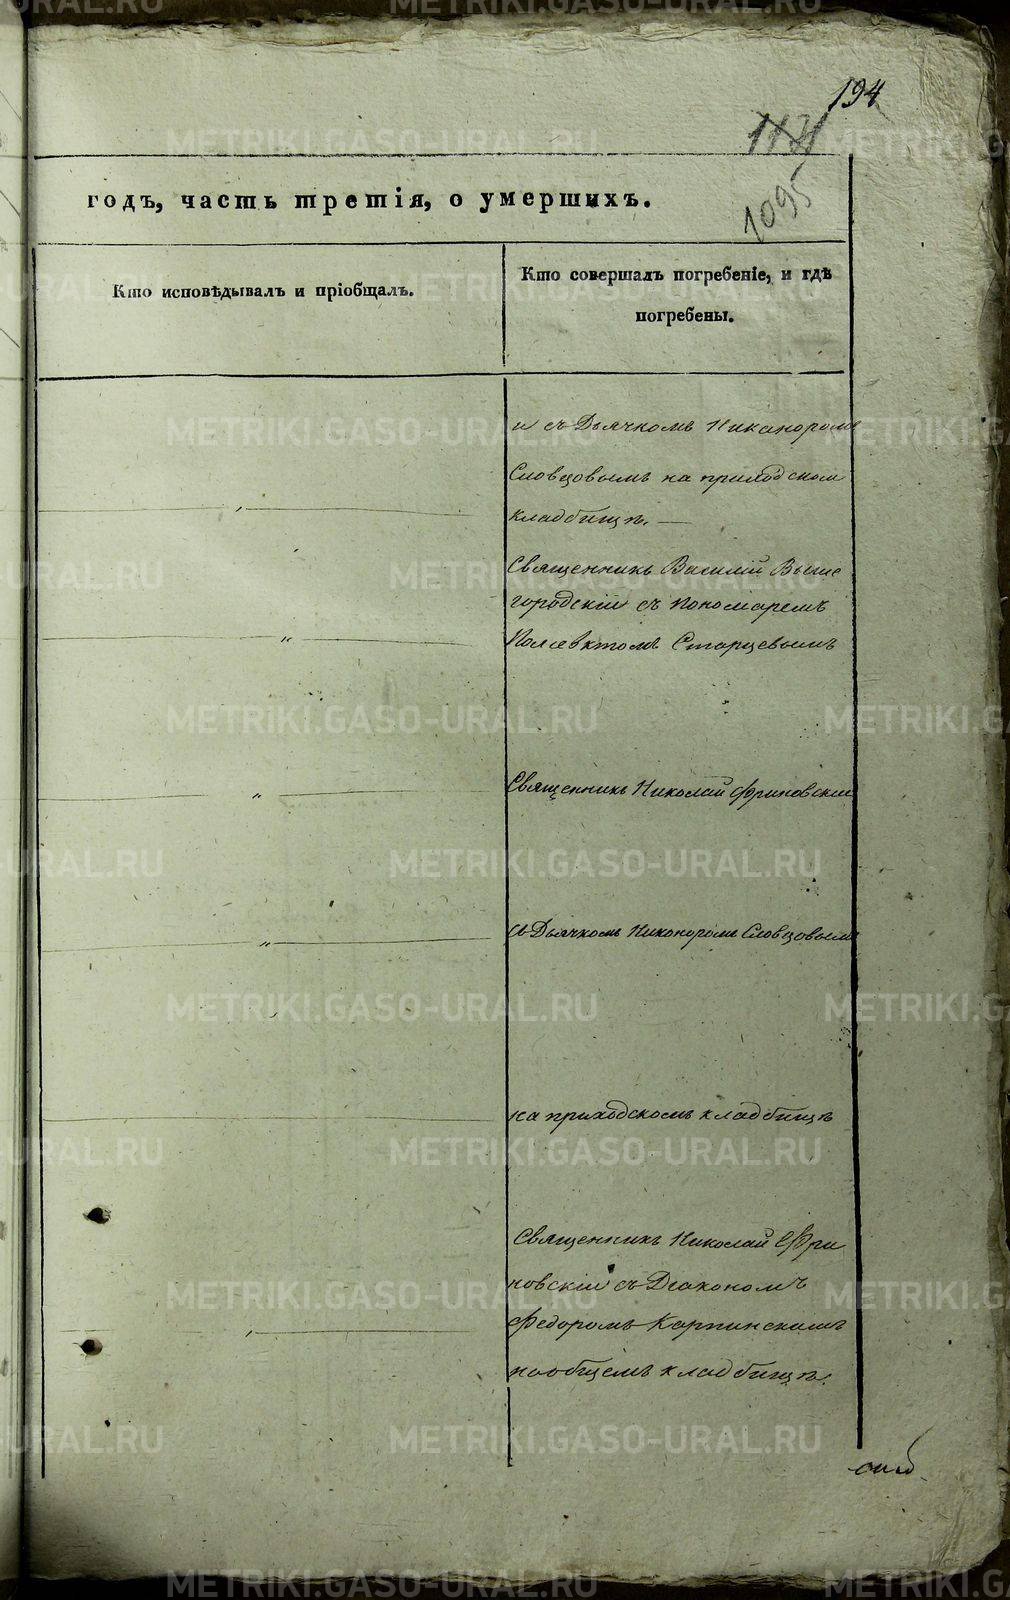 194
1095
годъ, часть третія, о умершихъ.
Кто исповѣдывалъ и пріобщалъ.
Кто совершалъ погребеніе, и гдѣ
погребены.
и съ Дьячкомъ Никаноромъ
Словцовымъ на приходском
кладбищѣ. —
Священникъ Василій Выше
городскій съ Пономаремъ
Полиевктомъ Старцевымъ
Священникъ Николай Фриновскій
съ Дьячкомъ Никоноромъ Словцовымъ
на приходскомъ кладбищѣ
Священникъ Николай Фри
новскій съ Діакономъ
Федоромъ Карпинскимъ
на общемъ кладбищѣ.
METRIKI.GASO-URAL.RU